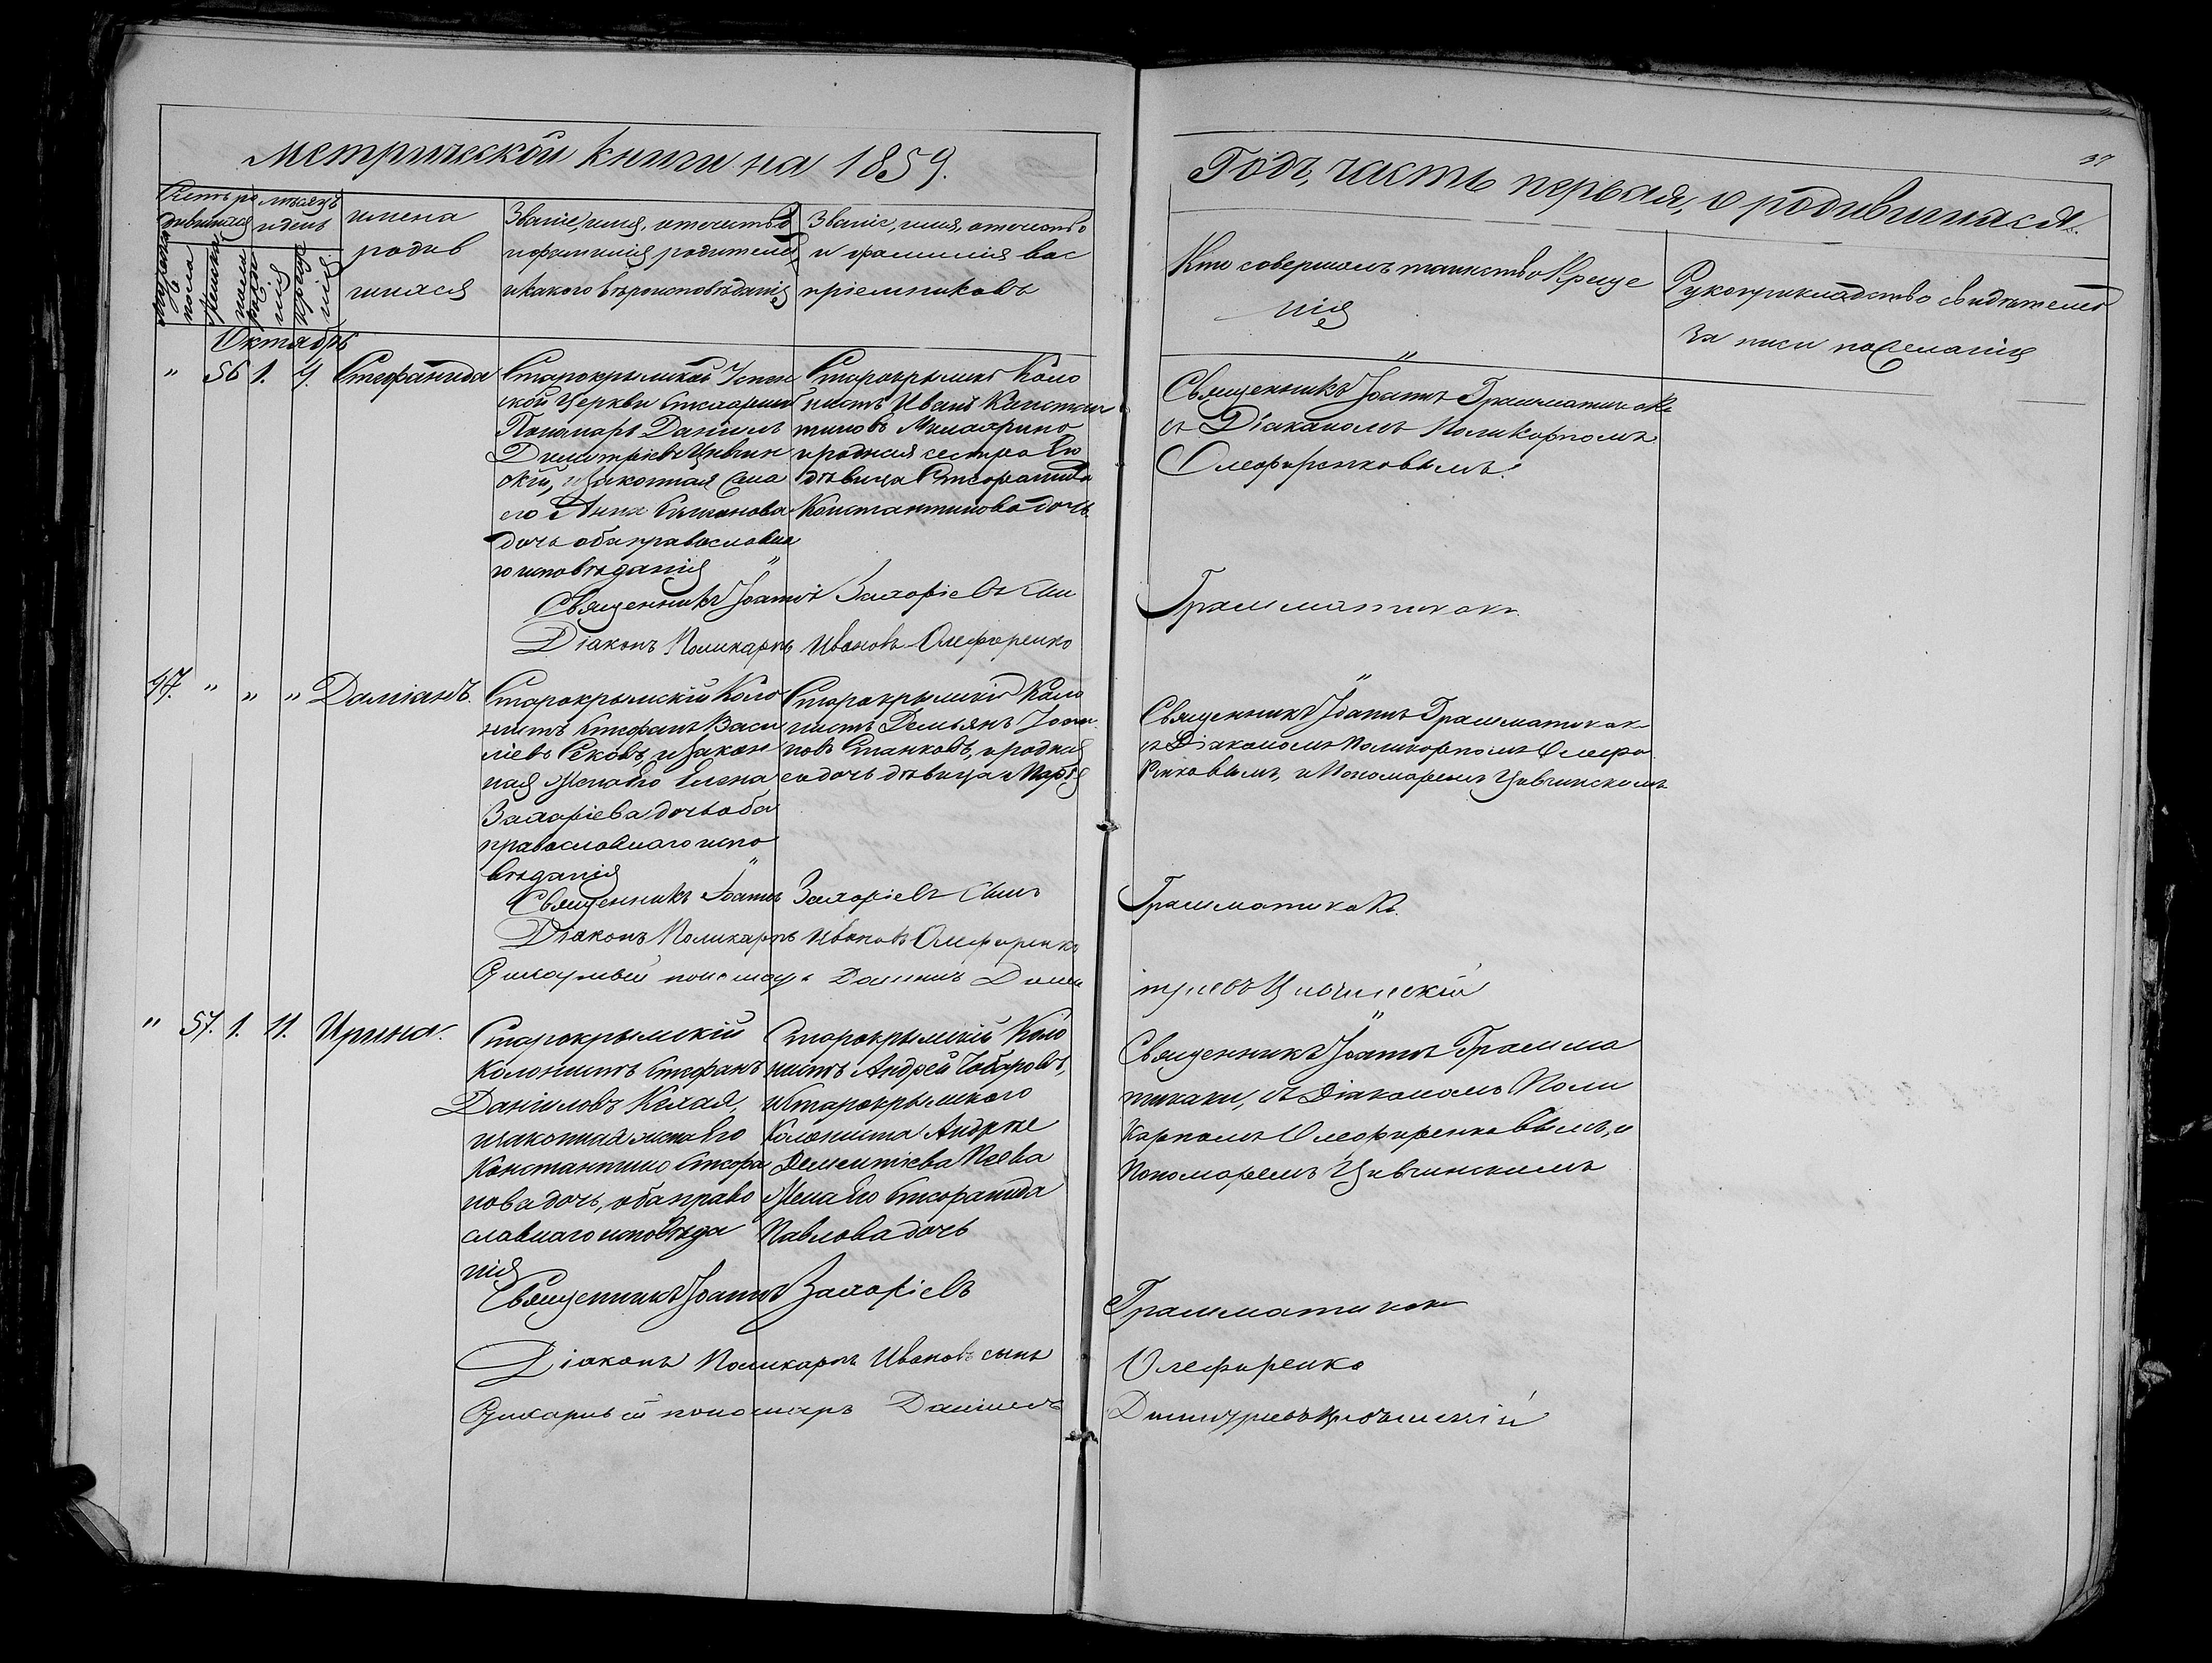 Метрической книги на 1859.
Годъ, часть первая, о родившихся.
37
Счетъ ро
дившихся
мужеска
пола
женска
мѣсяцъ
и день
рожде
нія
креще
нія
имена
родив
шихся
Званіе, имя, отечество
и фамилія родителей,
и какого вѣроисповѣданія
Званіе, имя, отечество
и фамилія вос
пріемниковъ
Кто совершалъ таинство Креще
нія
Рукоприкладство свидѣтелей
за писи по желанію
Октябрь
" 56 1. 4. Стефанида
Старокрымской Успен
ской Церкви
Пономарь Даніилъ
Димитріевъ Цивчин
скій, и законная жена
его Анна Степанова
дочь оба православна
го исповѣданія
Старокрымскій Коло
нистъ Иванъ Констан
тиновъ
и родная сестра его
дѣвица Стефанида
Константинова дочь.
Священникъ Іоаннъ Грамматикаки
съ Діакономъ Поликарпомъ
Олефиренковымъ.
Священникъ Іоаннъ Захаріевъ сын
Грамматикаки.
Діаконъ Поликарпъ Ивановъ Олефиренко
47. " " " Даміанъ.
Старокрымскій Коло
нистъ Стефанъ Васи
ліевъ Сековъ, и закон
ная жена его Елена
Захаріева дочь оба
православнаго испо
вѣданія
Старокрымскій Коло
нистъ Демьянъ
новъ Станковъ, и родная
его дочь дѣвица Марія
Священникъ Іоаннъ Грамматикаки
съ Діакономъ Поликарпомъ Олефи
ренковымъ, и Пономаремъ Цивчинскимъ
Священникъ Іоаннъ Захаріевъ сынъ
Грамматикаки.
Діаконъ Поликарпъ Ивановъ Олефиренко
пономарь Даніилъ Дими
тріевъ Цивчинскій
" 57. 1. 11. Ирина.
Старокрымскій
колонистъ Стефанъ
Даніиловъ Келая,
и законная жена его
Константина Стефа
нова дочь, оба право
славнаго исповѣда
нія
Старокрымскій Коло
нистъ Андрей Чобаровъ,
и Старокрымскаго
Колониста Андрея
Дементіева Пеева
Жена его Стефанида
Павлова дочь
Священникъ Іоаннъ Грамма
тикаки, съ Діакономъ Поли
карпомъ Олефиренковымъ, и
Пономаремъ Цивчинскимъ
Священникъ Іоаннъ Захаріевъ
Грамматикаки
Діаконъ Поликарпъ Ивановъ сынъ
Олефиренко
пономарь Даніилъ
Димитріевъ Цивчинскій